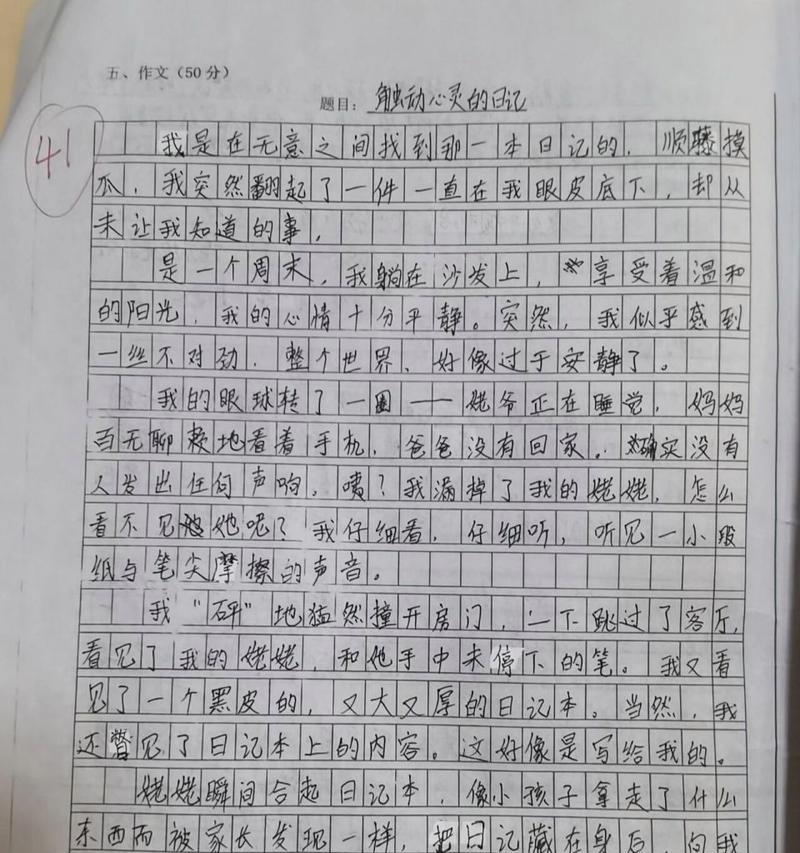 五、作文(50分)
题目：触动心灵的日记
41
我是在无意之间找到那一本日记的，顺藤摸
瓜，我突然翻起了一件一直在我眼皮底下，却从
未让我知道的事，
是一个周末，我躺在沙发上，享受着温和
的阳光，我的心情十分平静。突然，我似乎感到
一丝不对劲，整个世界、好像过于安静了。
我的眼球转了一圈——姥爷正在睡觉，妈妈
百无聊赖地看着手机，爸爸没有回家，确实没有
人发出任何声响。咦？我漏掉了我的姥姥，怎么
看不见她呢？我仔细看，仔细听，听见一小段
纸与笔尖摩擦的声音。
我“砰”地猛然撞开房门，一下跳过了客厅，
看见了我的姥姥，和她手中未停下的笔。我又看
见了一个黑皮的，又大又厚的日记本。当然，我
还瞥见了日记本上的内容。这好像是写给我的。
姥姥瞬间合起日记本，像小孩子拿走了什么
东西而被家长发现一样，把日记藏在身后，向我